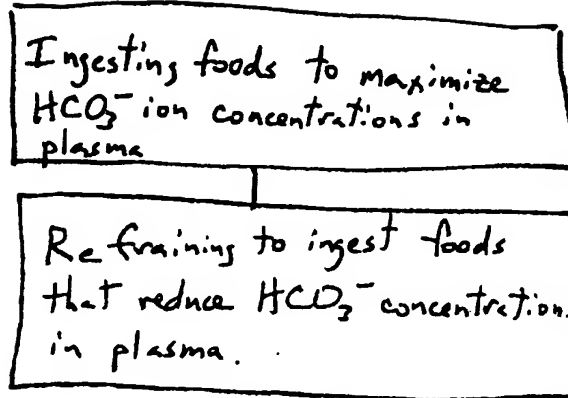 Ingesting foods to maximize
HCO₃⁻ ion concentrations in
plasma
Refraining to ingest foods
that reduce HCO₃⁻ concentration.
in plasma.